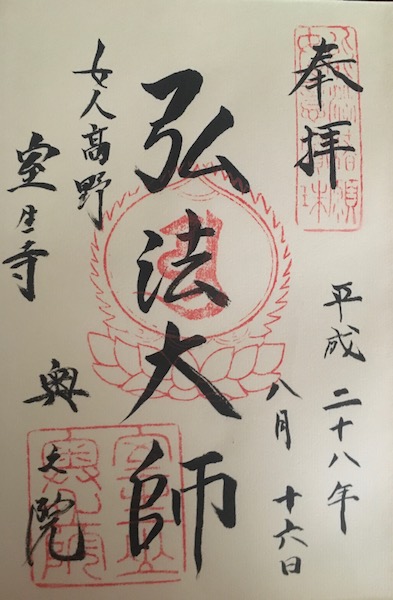 奉拝
平成二十八年
八月十六日
弘法大師
女人高野
室生寺
奥之院